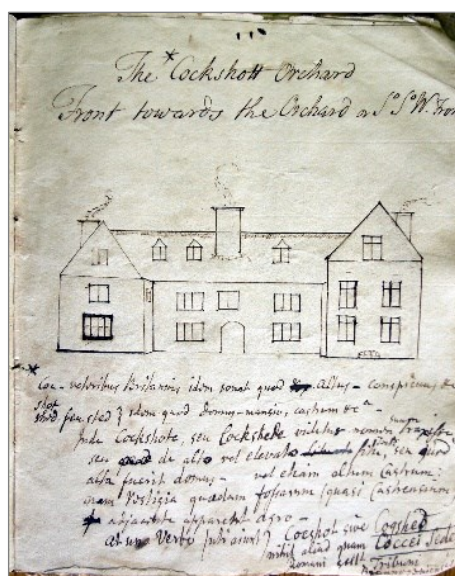 The *Cockshott Orchard
Front towards the Orchard or S° S° W. Front
* Coc - veteribus Britannis idem sonat quod Altus - conspicuus &
shot seu sted } idem quod domus - mansio, castrum &c -
inde Cockshote, seu Cockshede videtur nomen
seu de alto vel elevato situ, seu quod
alta fuerit domus - vel etiam altum Castrum:
nam Vestigia quædam fossarum (quasi Castrensium)
adjacente apparent agro -
at uno Verbo Cocshot sive Cogshed
nihil aliud quam Coccei Sedes
Romani Tribuni